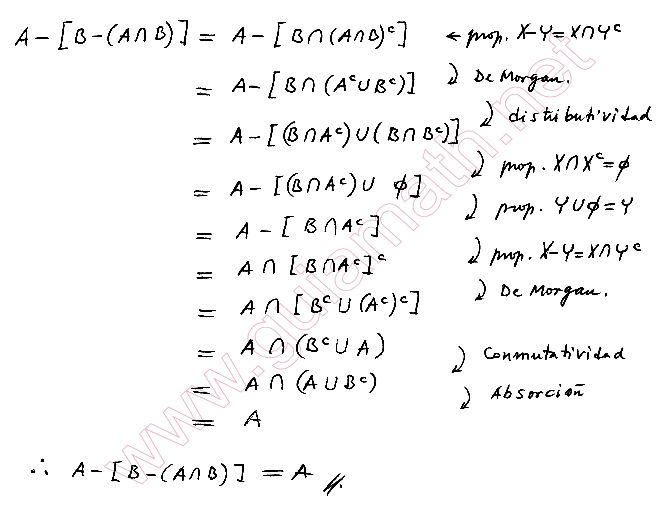 A-[B-(A∩B)] = A-[B∩(A∩B)ᶜ] ← prop. X-Y=X∩Yᶜ
= A-[B∩(Aᶜ∪Bᶜ)] De Morgan.
= A-[(B∩Aᶜ)∪(B∩Bᶜ)] distributividad
= A-[(B∩Aᶜ)∪ ϕ] prop. X∩Xᶜ=ϕ
= A-[B∩Aᶜ] prop. Y∪ϕ=Y
= A∩[B∩Aᶜ]ᶜ prop. X-Y=X∩Yᶜ
= A∩[Bᶜ∪(Aᶜ)ᶜ] De Morgan.
= A∩(Bᶜ∪A)
= A∩(A∪Bᶜ) Conmutatividad
= A Absorción
∴ A-[B-(A∩B)] = A //.
www.guiamath.net